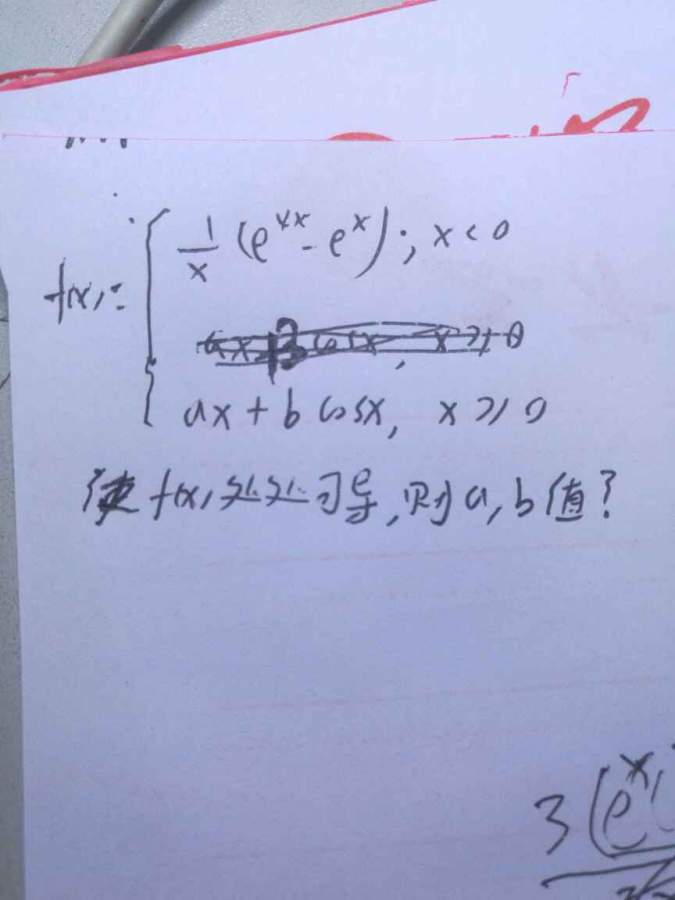 f(x)= { 1/x (e^{4x} - e^x); x<0
ax + b cosx, x≥0
使 f(x)处处可导,则a,b值?
3(e^x(